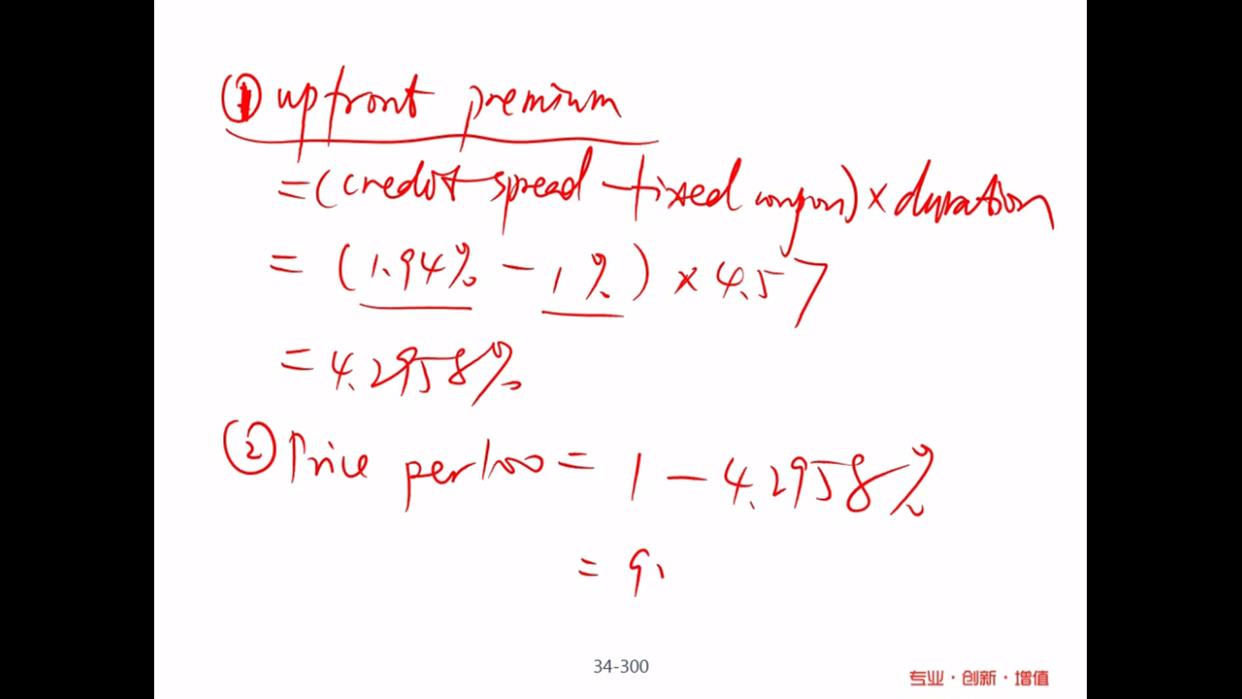 ① upfront premium
= (credit spread - fixed coupon) × duration
= (1.94% - 1%) × 4.57
= 4.2958%
② Price per 100 = 1 - 4.2958%
= 9
34-300
专业·创新·增值